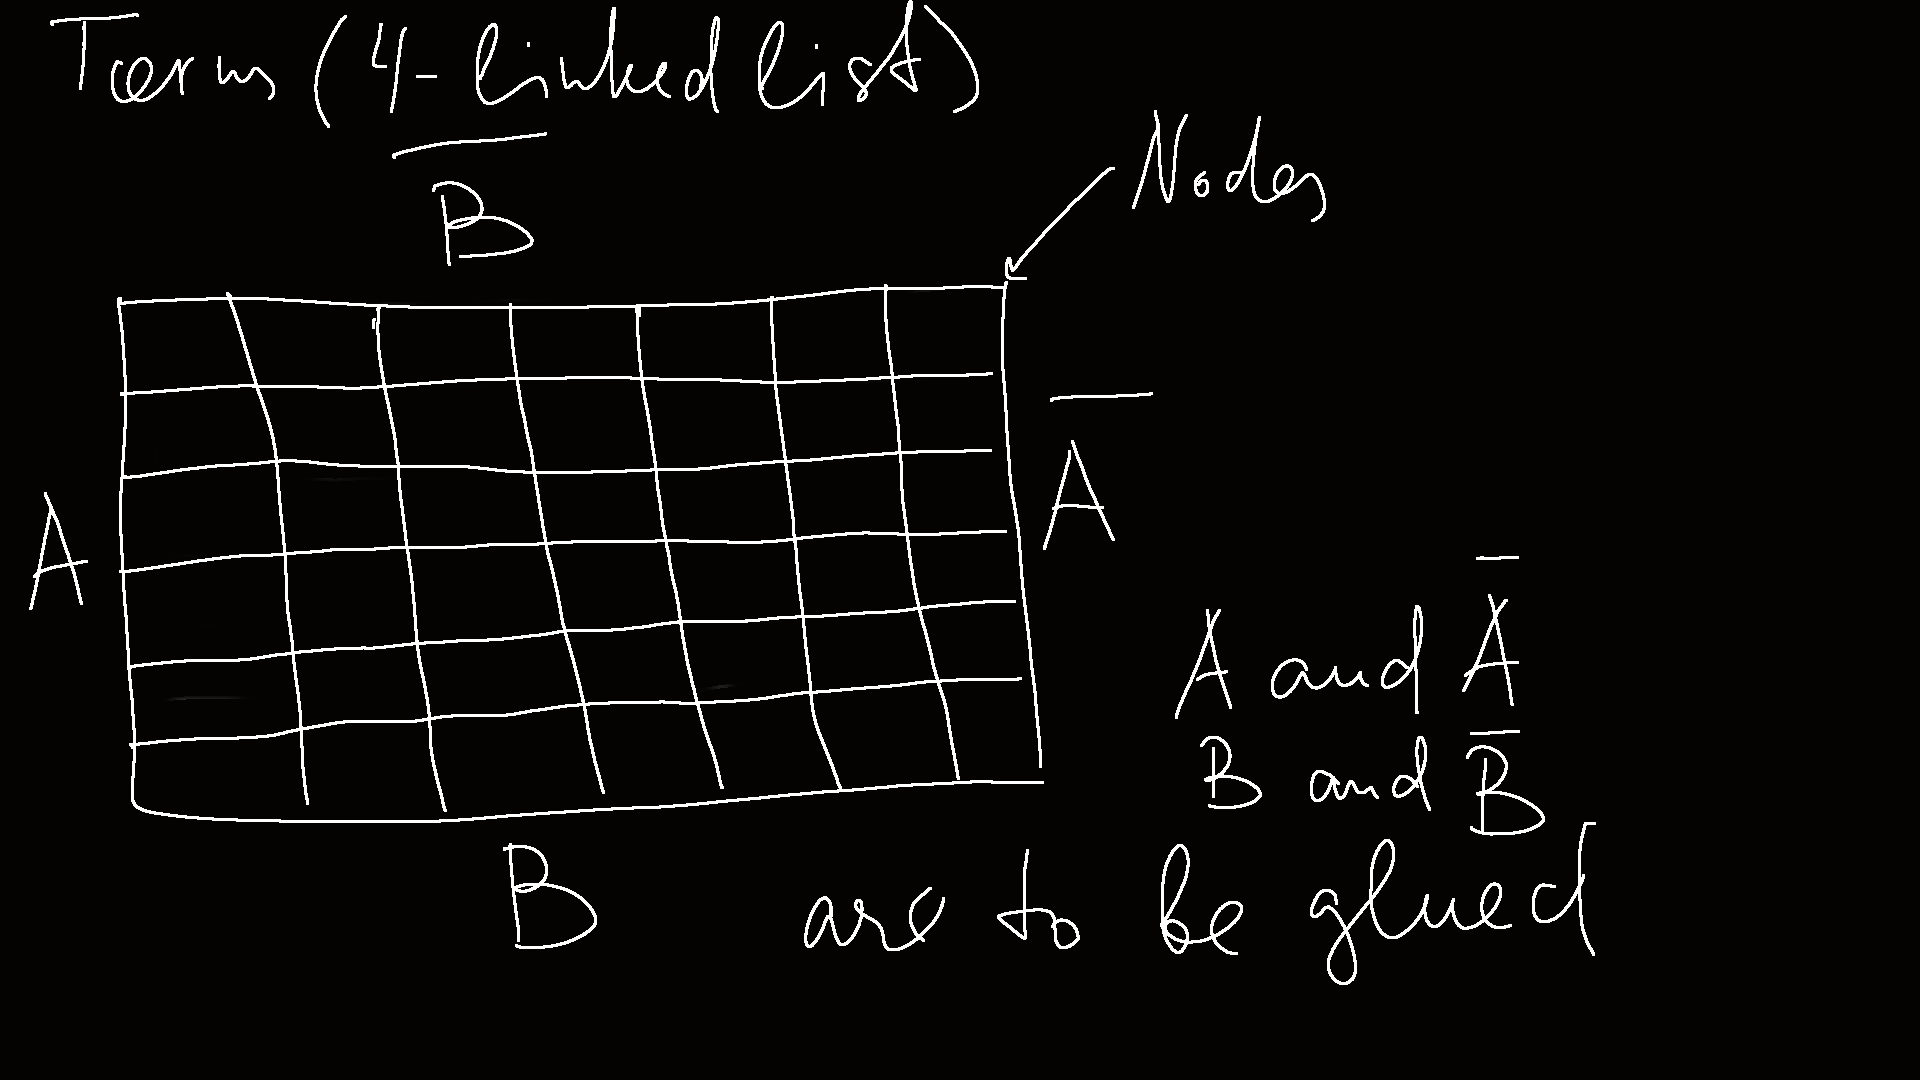 Torus (4-linked list)
B̅
Nodes
A
A̅
A and A̅
B and B̅
B
are to be glued